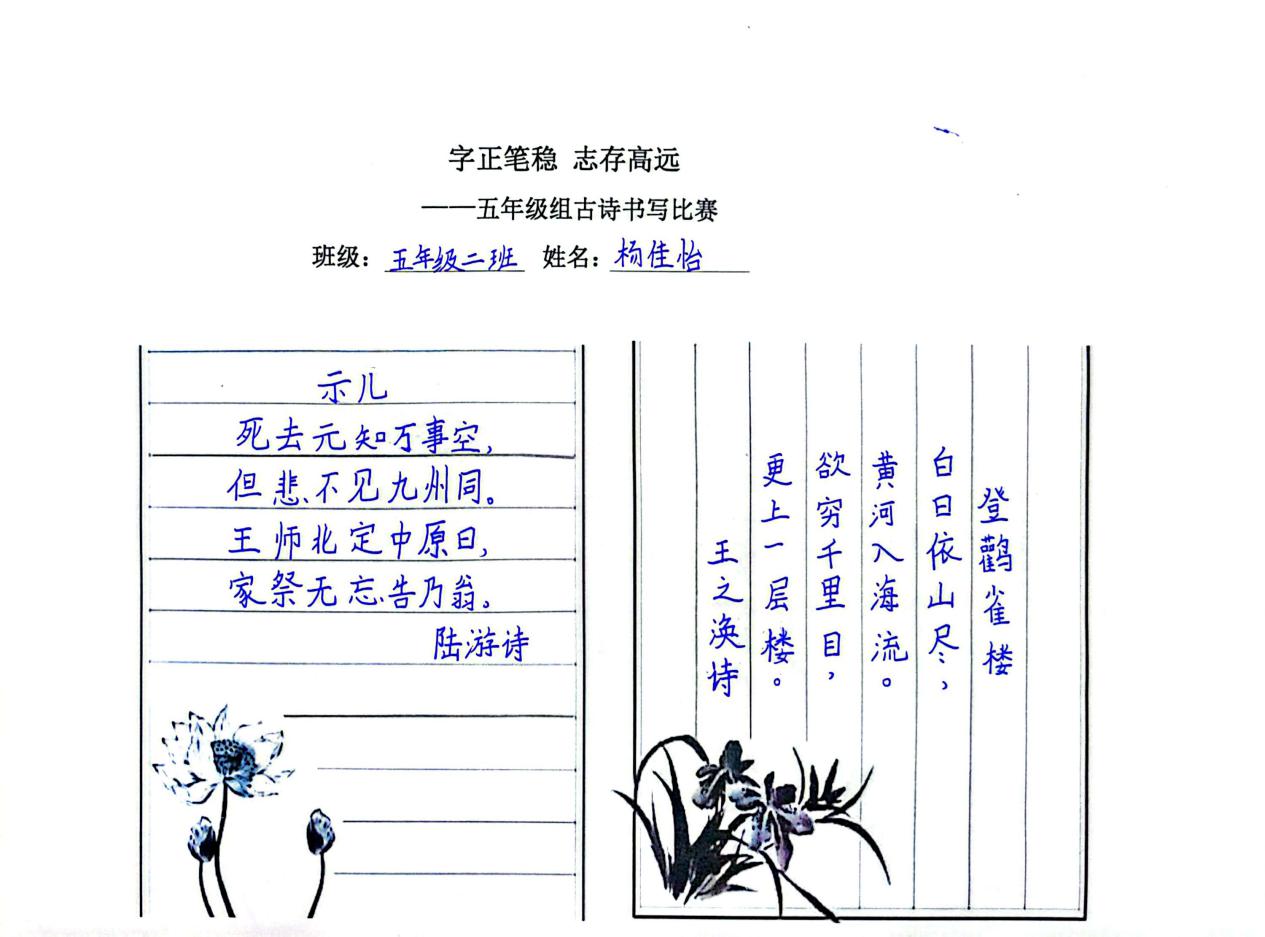 字正笔稳 志存高远
——五年级组古诗书写比赛
班级：五年级二班 姓名：杨佳怡
示儿
死去元知万事空，
但悲不见九州同。
王师北定中原日，
家祭无忘告乃翁。
陆游诗
登鹳雀楼
白日依山尽，
黄河入海流。
欲穷千里目，
更上一层楼。
王之涣诗